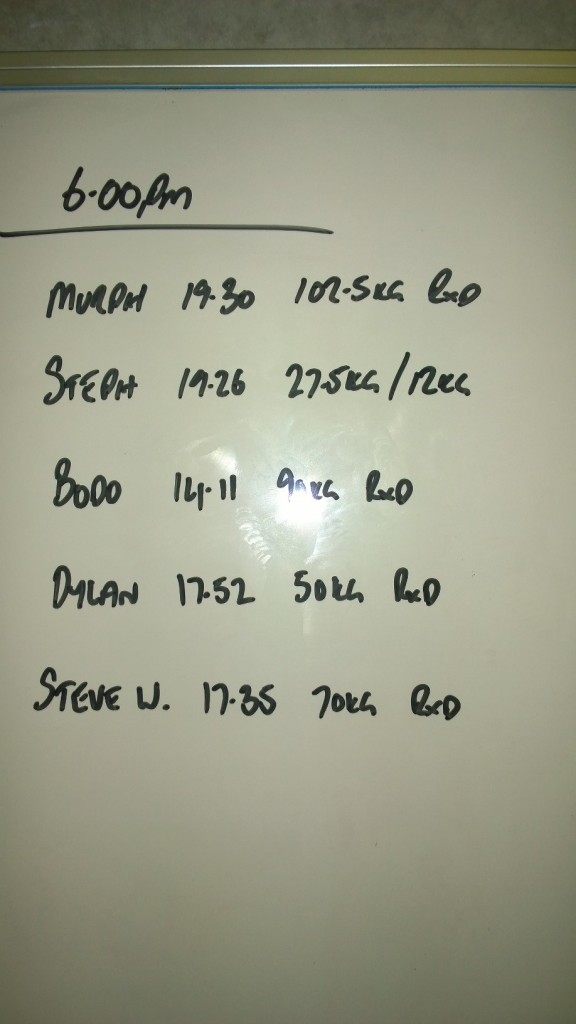 6.00pm
MURPH 19.30 102.5KG RxD
STEPH 19.26 27.5KG / 12KG
BODO 14.11 RxD
DYLAN 17.52 50KG RxD
STEVE W. 17.35 70KG RxD